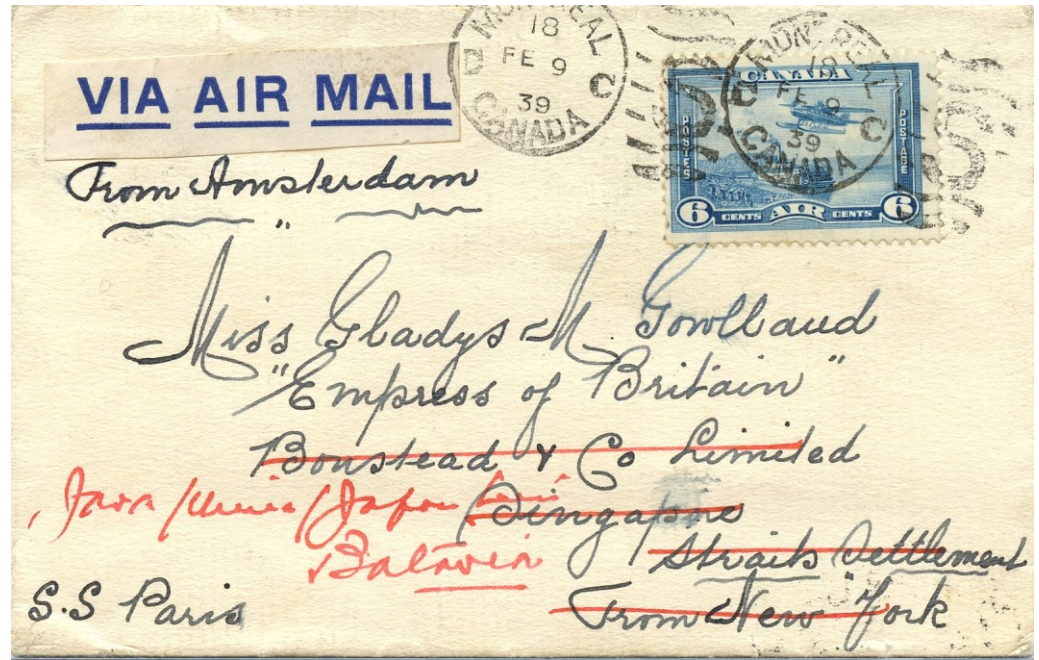 MONTREAL
18
FE 9
39
CANADA
C
VIA AIR MAIL
MONTREAL
18
FE 9
39
CANADA
C
CANADA
POSTES
POSTAGE
6 CENTS AIR CENTS 6
From Amsterdam
"
Miss Gladys M. Gowlland
"Empress of Britain"
Boustead & Co Limited
Java/China/Japan
Singapore
Batavia
Straits Settlement
S.S Paris
From New York